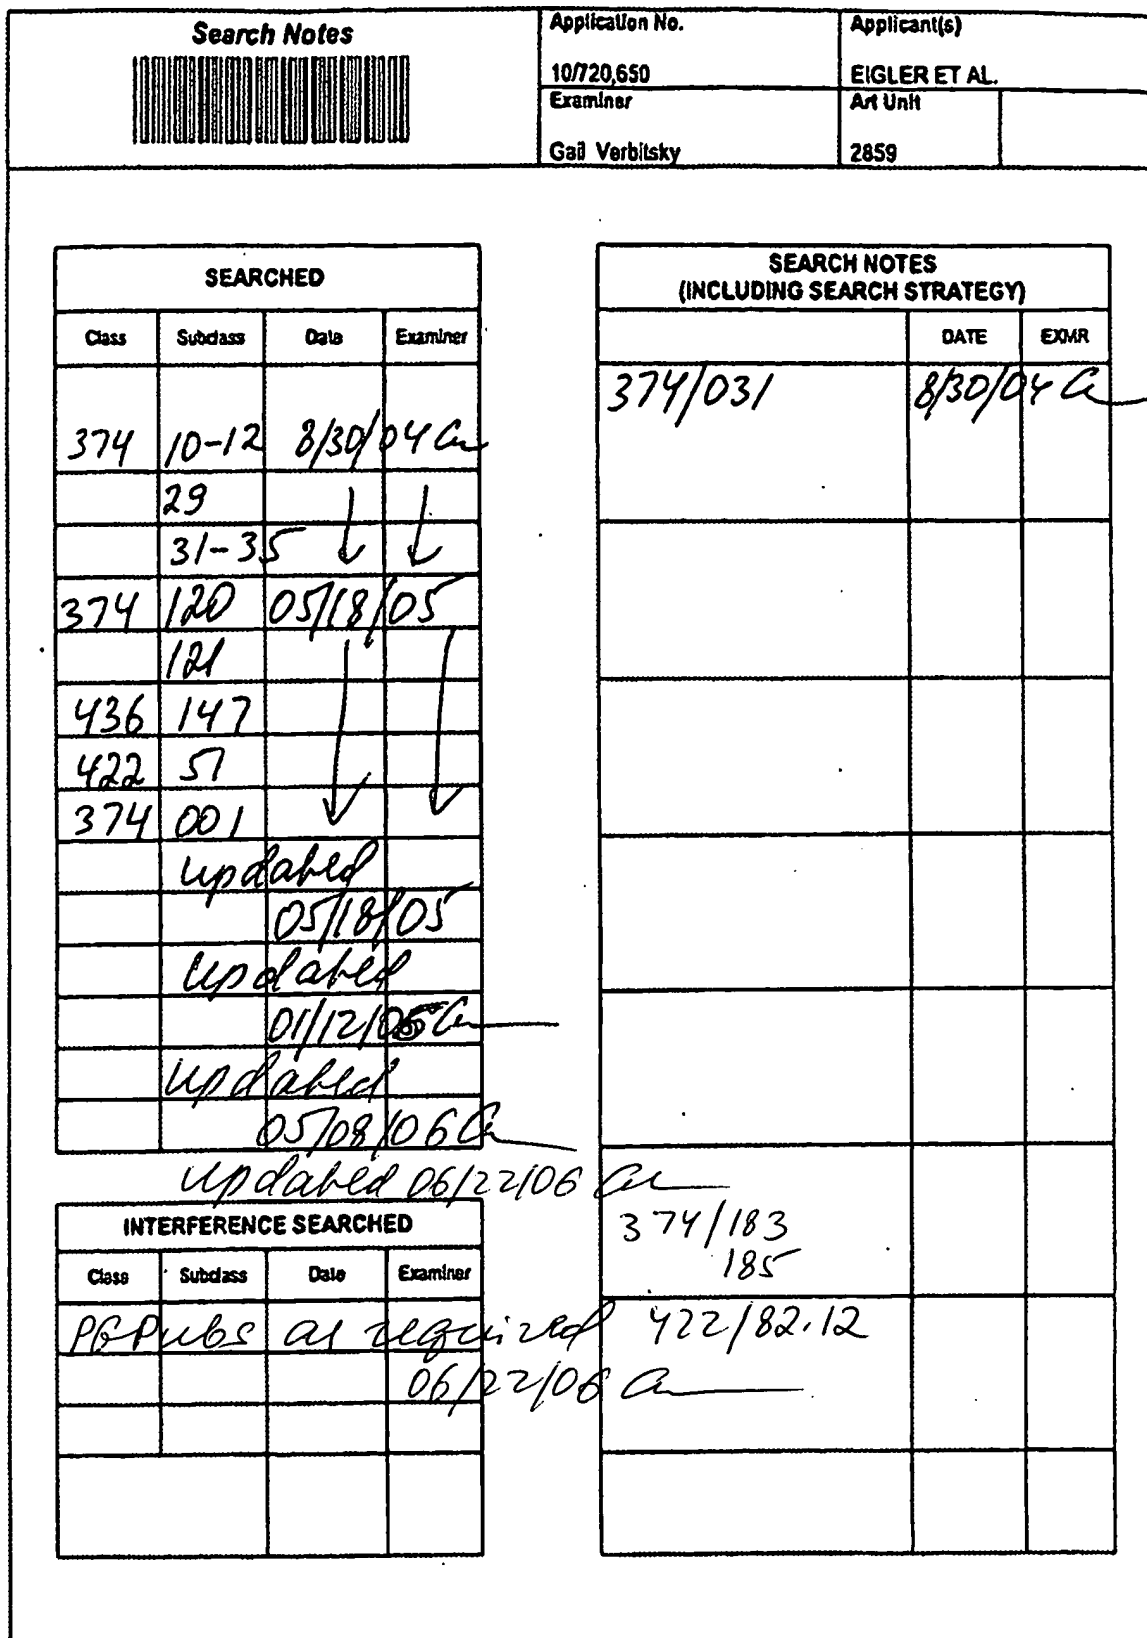 Search Notes
Application No.
10/720,650
Applicant(s)
EIGLER ET AL.
Examiner
Gail Verbitsky
Art Unit
2859
SEARCHED
Class Subclass Date Examiner
374 10-12 8/30/04
29
31-35
374 120 05/18/05
121
436 147
422 51
374 001
updated
05/18/05
updated
01/12/06
updated
05/08/06
updated 06/22/06
INTERFERENCE SEARCHED
Class Subclass Date Examiner
PGPubs as required
06/22/06
SEARCH NOTES
(INCLUDING SEARCH STRATEGY)
DATE EXMR
374/031 8/30/04
374/183
185
422/82.12